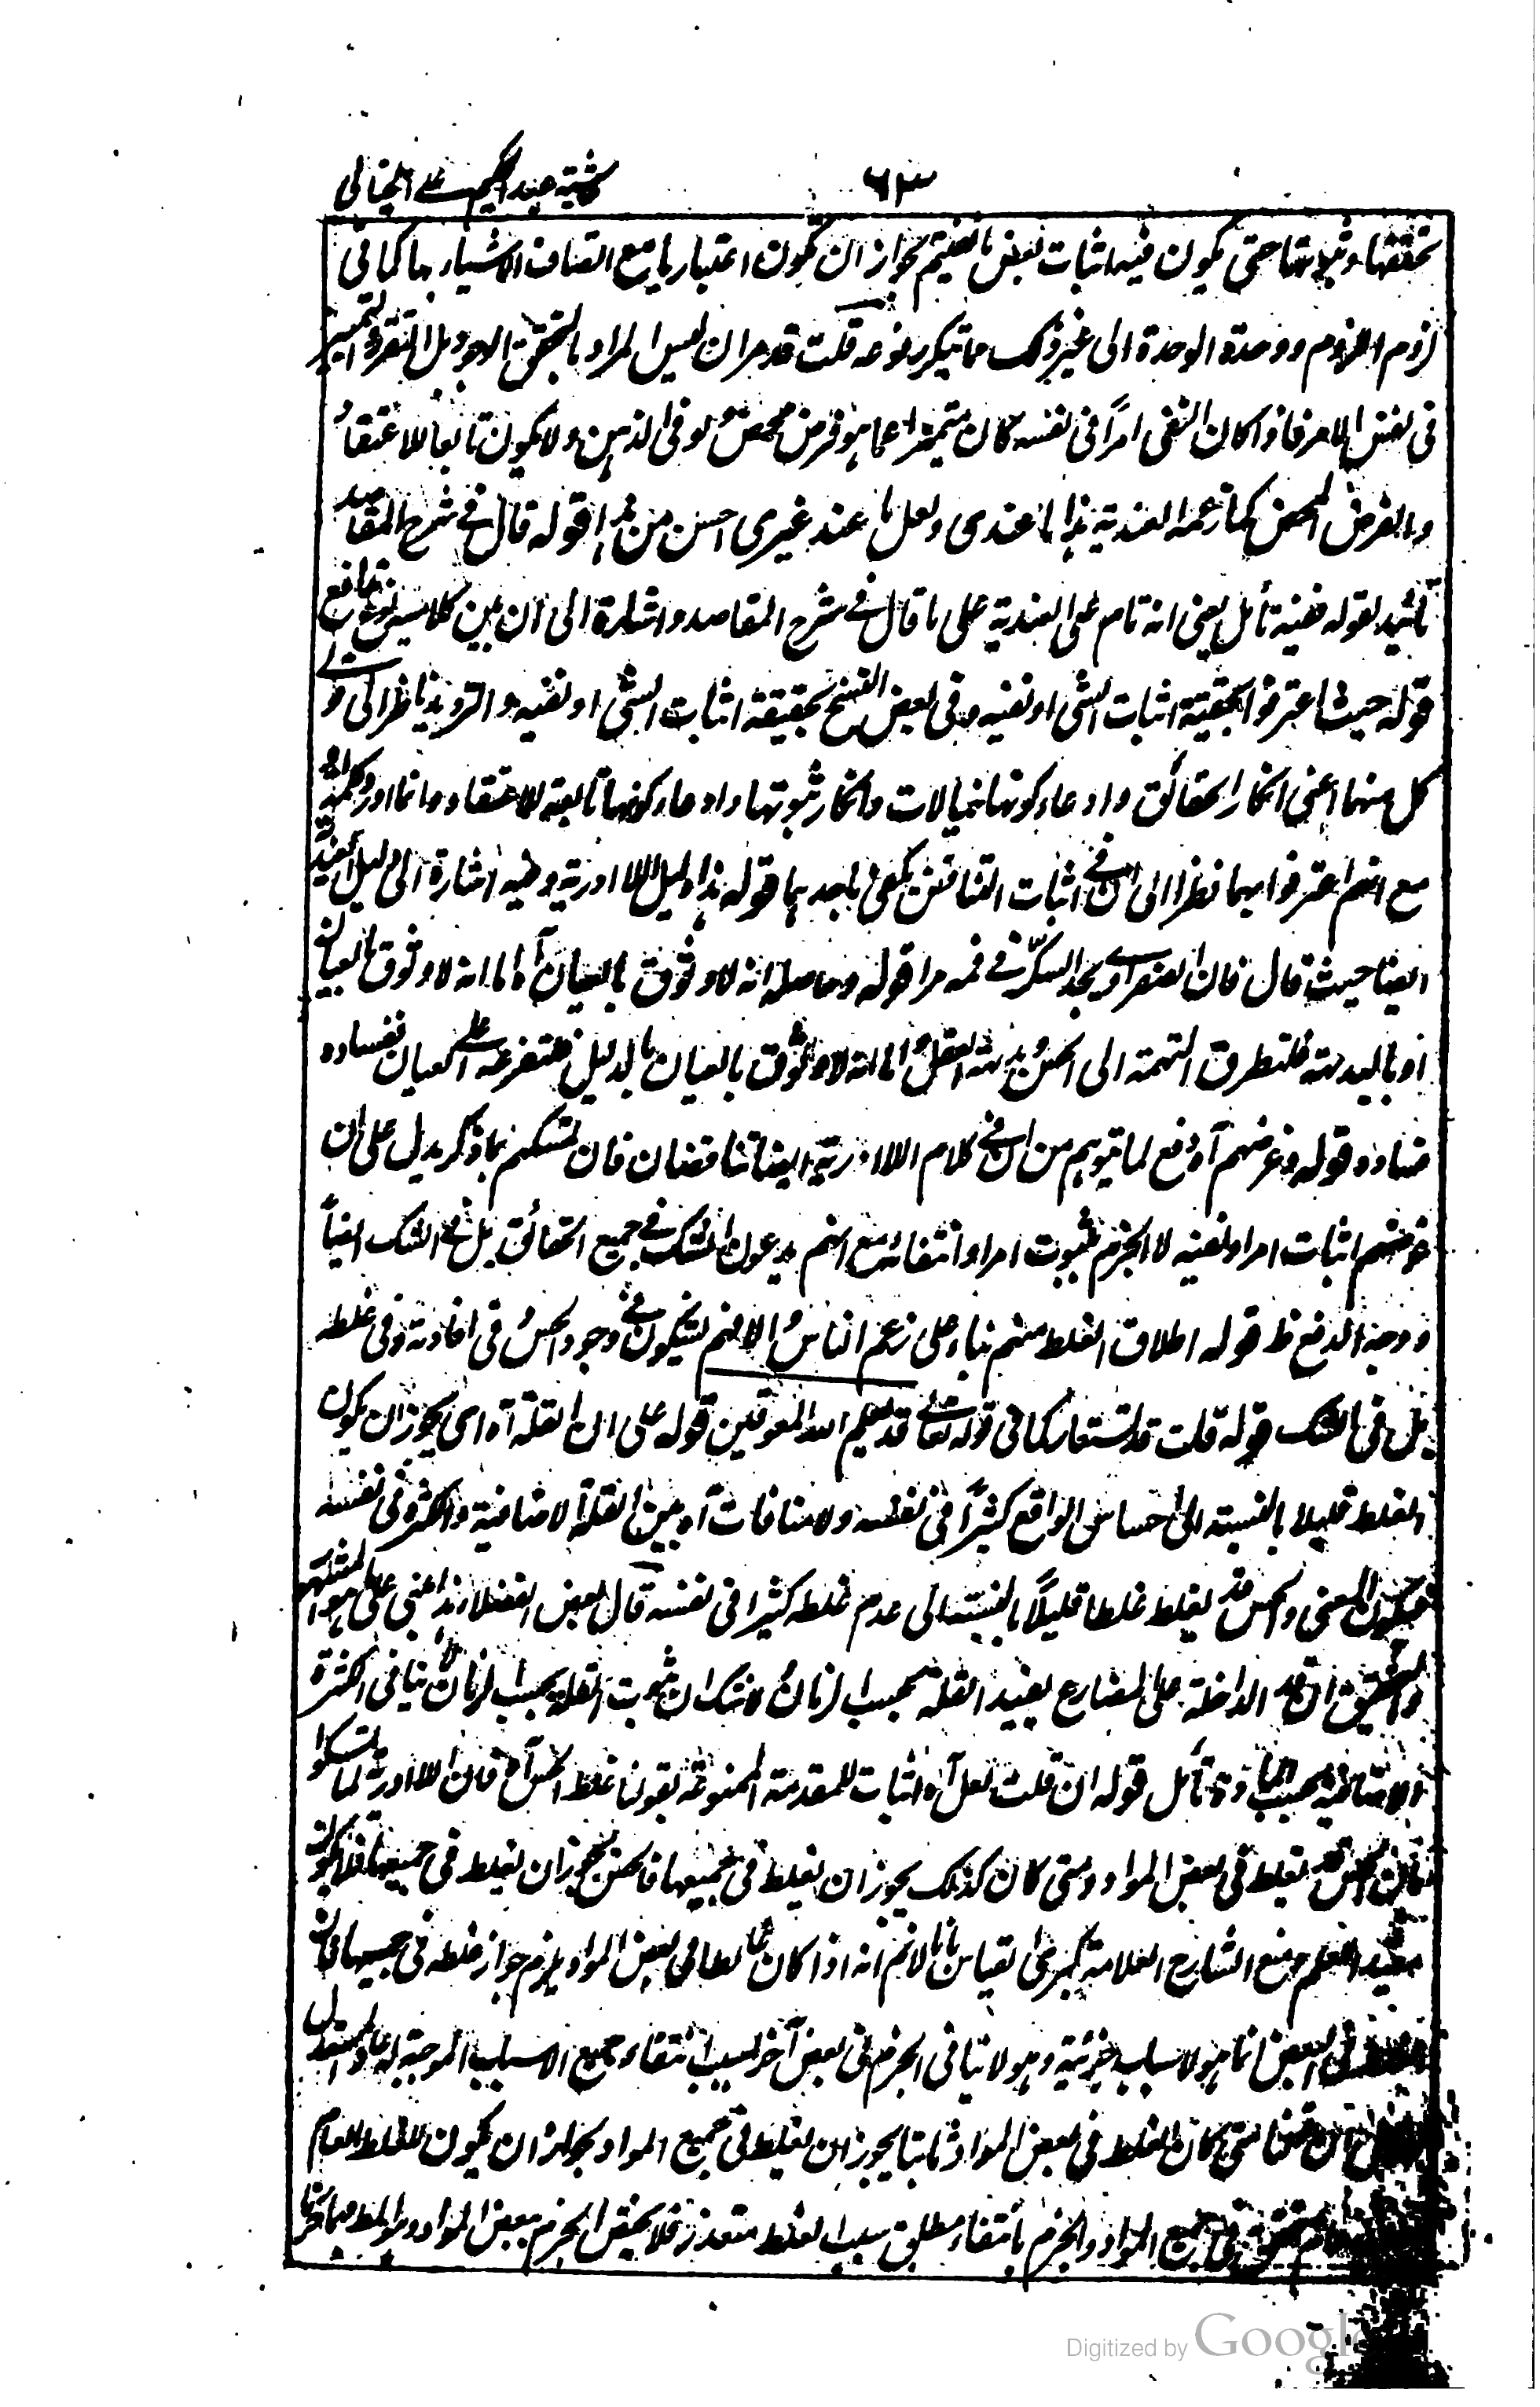 حاشية عبد الحكيم على الخيالى
٦٣
تحققها وثبوتها حتى يكون فيه اثبات بعض ما نفيتم لجواز ان تكون اعتباريا مع اتصاف الاشياء بها كما فى
لزوم اللزوم ووحدة الوحدة الى غير ذلك مما يتكرر نوعه قلت قد مر ان ليس المراد بالتحقق الوجود بل التقرر والتميز
فى نفس الامر فاذا كان النفى امراً فى نفسه كان متميزا عما هو فرض محض ولو فى الذهن ولا يكون تابعا للاعتقاد
وبالفرض المحض كما زعمه العندية هذا ما عندى ولعل ما عند غيرى احسن من هذا قوله قال فى شرح المقاصد
تائيد لقوله ففيه تأمل يعنى انه تام على العندية على ما قال فى شرح المقاصد واشارة الى ان بين كلاميه نوع تدافع
قوله حيث اعترفوا بحقية اثبات الشئ او نفيه وفى بعض النسخ بحقيقة اثبات الشئ او نفيه والترديد ناظر الى
كل منهما اعنى انكار الحقائق وادعاء كونها خيالات وانكار ثبوتها وادعاء كونها تابعة للاعتقاد وانما اورد كلمة او
مع انهم اعترفوا بهما نظرا الى ان فى اثبات التناقض يكفى باحدهما قوله هذا دليل اللاادرية وفيه اشارة الى دليل العندية
ايضا حيث قال فان الصفراوى يجد السكر فى فمه مرا قوله وحاصله انه لا وثوق بالعيان آه اما انه لا وثوق بالعيان
او بالبديهة فلتطرق التهمة الى الحس وبديهة العقل واما انه لا وثوق بالعيان بالدليل فلتفرعه على العيان ففساده
فساده قوله وغرضهم آه دفع لما يتوهم من ان فى كلام اللاادرية ايضا تناقضان فان تمسكهم بما ذكر يدل على ان
غرضهم اثبات امر او نفيه لا الجزم بثبوت امر او انتفائه مع انهم يدعون الشك فى جميع الحقائق بل فى الشك ايضاً
ووجه الدفع ظ قوله اطلاق الغلط منهم بناء على زعم الناس والا فهم يشكون فى وجود الحس فى افادته وفى غلطه
بل فى الشك قوله قلت قد تستعار كما فى قوله تعالى قد يعلم الله المعوقين قوله على ان القلة آه اى يجوز ان يكون
الغلط قليلا بالنسبة الى احساس الواقع كثيراً فى نفسه ولا منافات آه بين القلة الاضافية والكثرة فى نفسه
فيكون المعنى والحس قد يغلط غلطا قليلاً بالنسبة الى عدم غلطه كثيرا فى نفسه قال بعض الفضلاء هذا مبنى على ما هو المشتهر
والتحقيق ان قد الداخلة على المضارع يفيد القلة بحسب الزمان ولا شك ان ثبوت القلة بحسب الزمان لا ينافى الكثرة
الاضافية بحسب المادة تأمل قوله ان قلت لعل آه اثبات للمقدمة الممنوعة بقوله غلط الحس آه فان اللاادرية لما تمسكوا
بان الحس قد يغلط فى بعض المواد ومتى كان كذلك يجوز ان يغلط فى جميعها فالحس يجوز ان يغلط فى جميعها فلا يكون
مفيد العلم ومنع الشارح العلامة كبرى القياس بانا لا نم انه اذا كان غالطا فى بعض المواد يلزم جواز غلطه فى جميعها فان
الغلط فى البعض انما هو لاسباب جزئية وهو لا ينافى الجزم فى بعض آخر بسبب انتفاء جميع الاسباب الموجبة له عاد المستدل
متى كان الغلط فى بعض المواد ثابتا يجوز ان يغلط فى جميع المواد لجواز ان يكون للغلط العام
سبب عام متحقق فى جميع المواد والجزم بانتفاء مطلق سبب الغلط متعذر فلا يحصل الجزم ببعض المواد